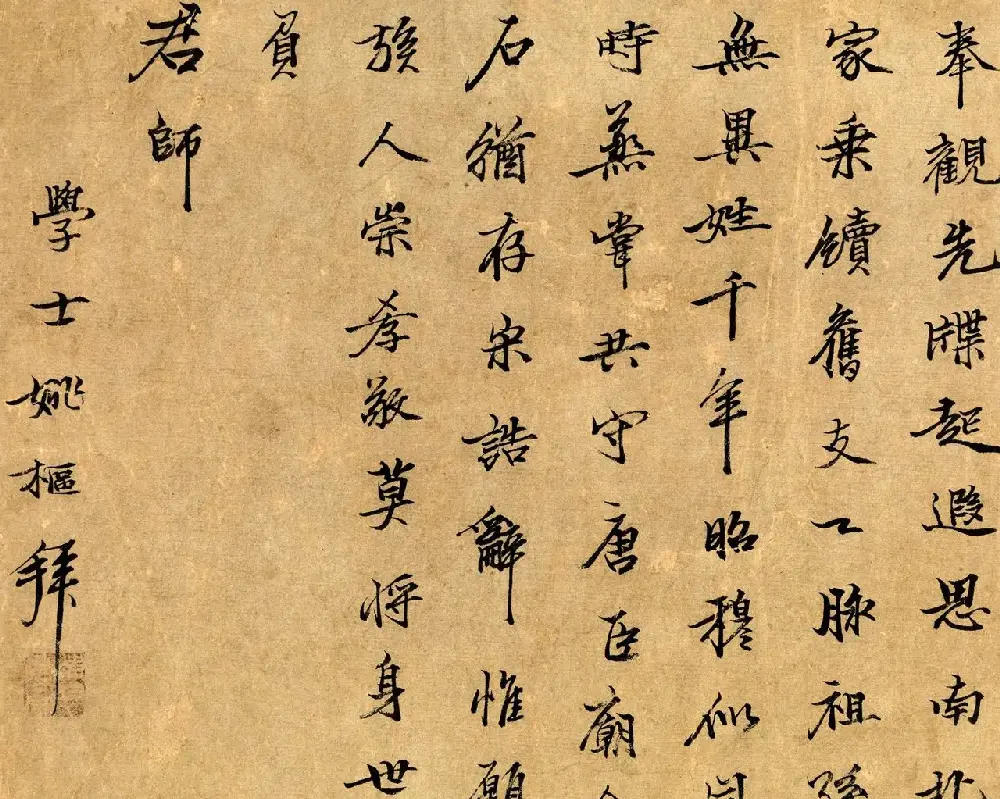 奉觀先牒起遐思南北
家乘續舊支〻脉祖孫
無異姓千年昭穆似同
時蒸嘗共守唐臣廟
石猶存宋誥辭惟願
族人崇孝敬莫將身世
負
君師
學士姚樞拜